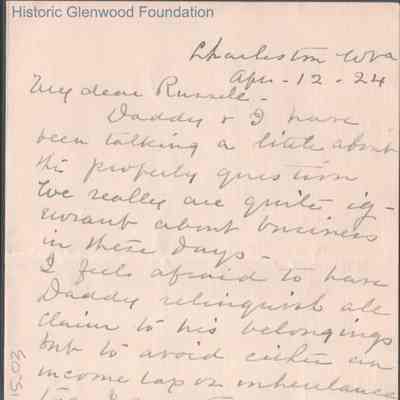 Historic Glenwood Foundation
Charleston Wva
Apr - 12 - 24
My dear Russell -
Daddy & I have
been talking a little about
the property question
We really are quite ig-
norant about business
in these days -
I feel afraid to have
Daddy relinquish all
claim to his belongings
but to avoid either an
income tax or inheritance
15.03